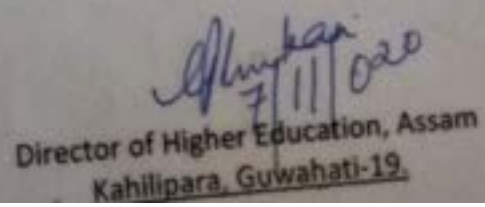 7/11/020
Director of Higher Education, Assam
Kahilipara, Guwahati-19.